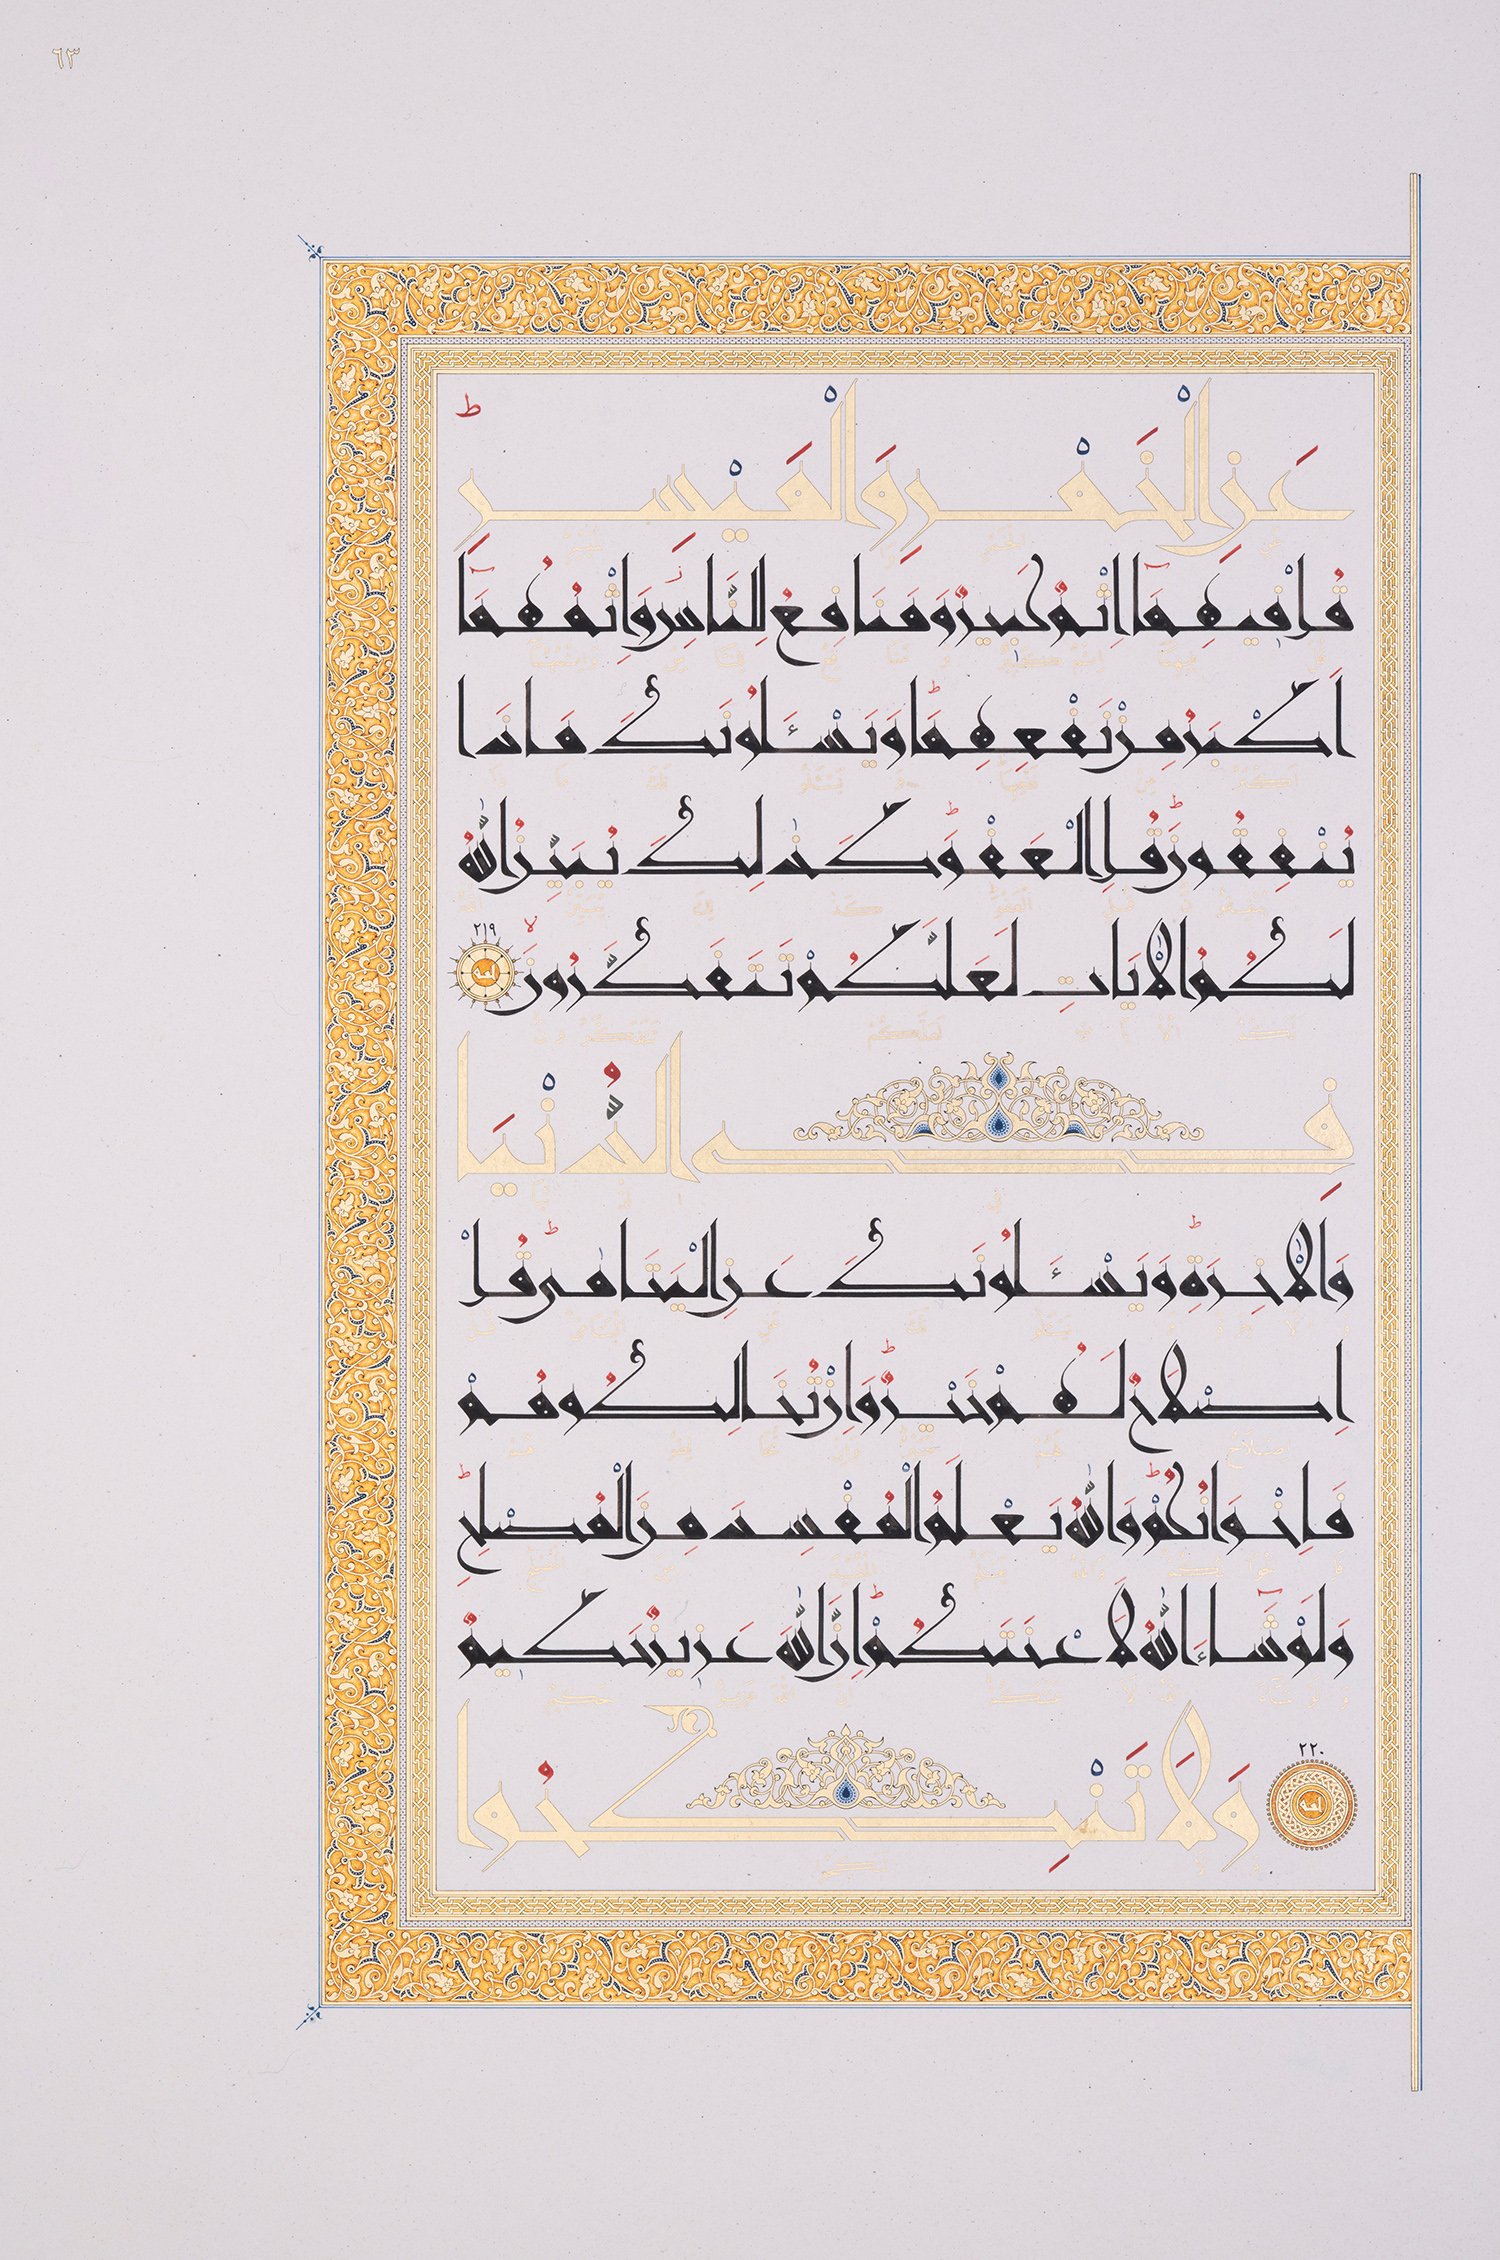 ٦٣
عَنِ الْخَمْرِ وَالْمَيْسِرِ ط
قُلْ فِيهِمَٓا اِثْمٌ كَبِيرٌ وَمَنَافِعُ لِلنَّاسِ وَاِثْمُهُمَٓا
اَكْبَرُ مِنْ نَفْعِهِمَا ط وَيَسْـَٔلُونَكَ مَاذَا
يُنْفِقُونَ قُلِ الْعَفْوَ ط كَذٰلِكَ يُبَيِّنُ اللّٰهُ
لَكُمُ الْاٰيَاتِ لَعَلَّكُمْ تَتَفَكَّرُونَ لا ٢١٩
فِي الدُّنْيَا
وَالْاٰخِرَةِ ط وَيَسْـَٔلُونَكَ عَنِ الْيَتَامٰى ط قُلْ
اِصْلَاحٌ لَهُمْ خَيْرٌ ط وَاِنْ تُخَالِطُوهُمْ
فَاِخْوَانُكُمْ ط وَاللّٰهُ يَعْلَمُ الْمُفْسِدَ مِنَ الْمُصْلِحِ ط
وَلَوْ شَٓاءَ اللّٰهُ لَاَعْنَتَكُمْ ط اِنَّ اللّٰهَ عَزِيزٌ حَكِيمٌ
٢٢٠ وَلَا تَنْكِحُوا